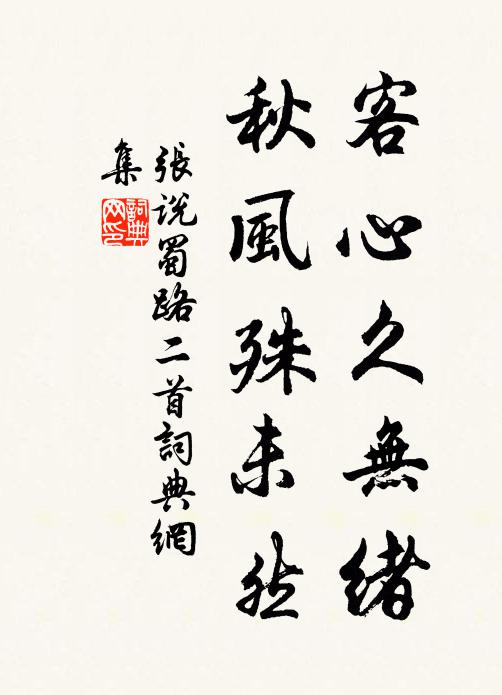 客心久無緒
秋風殊未然
張說蜀路二首詞典網
集
詞典
网印